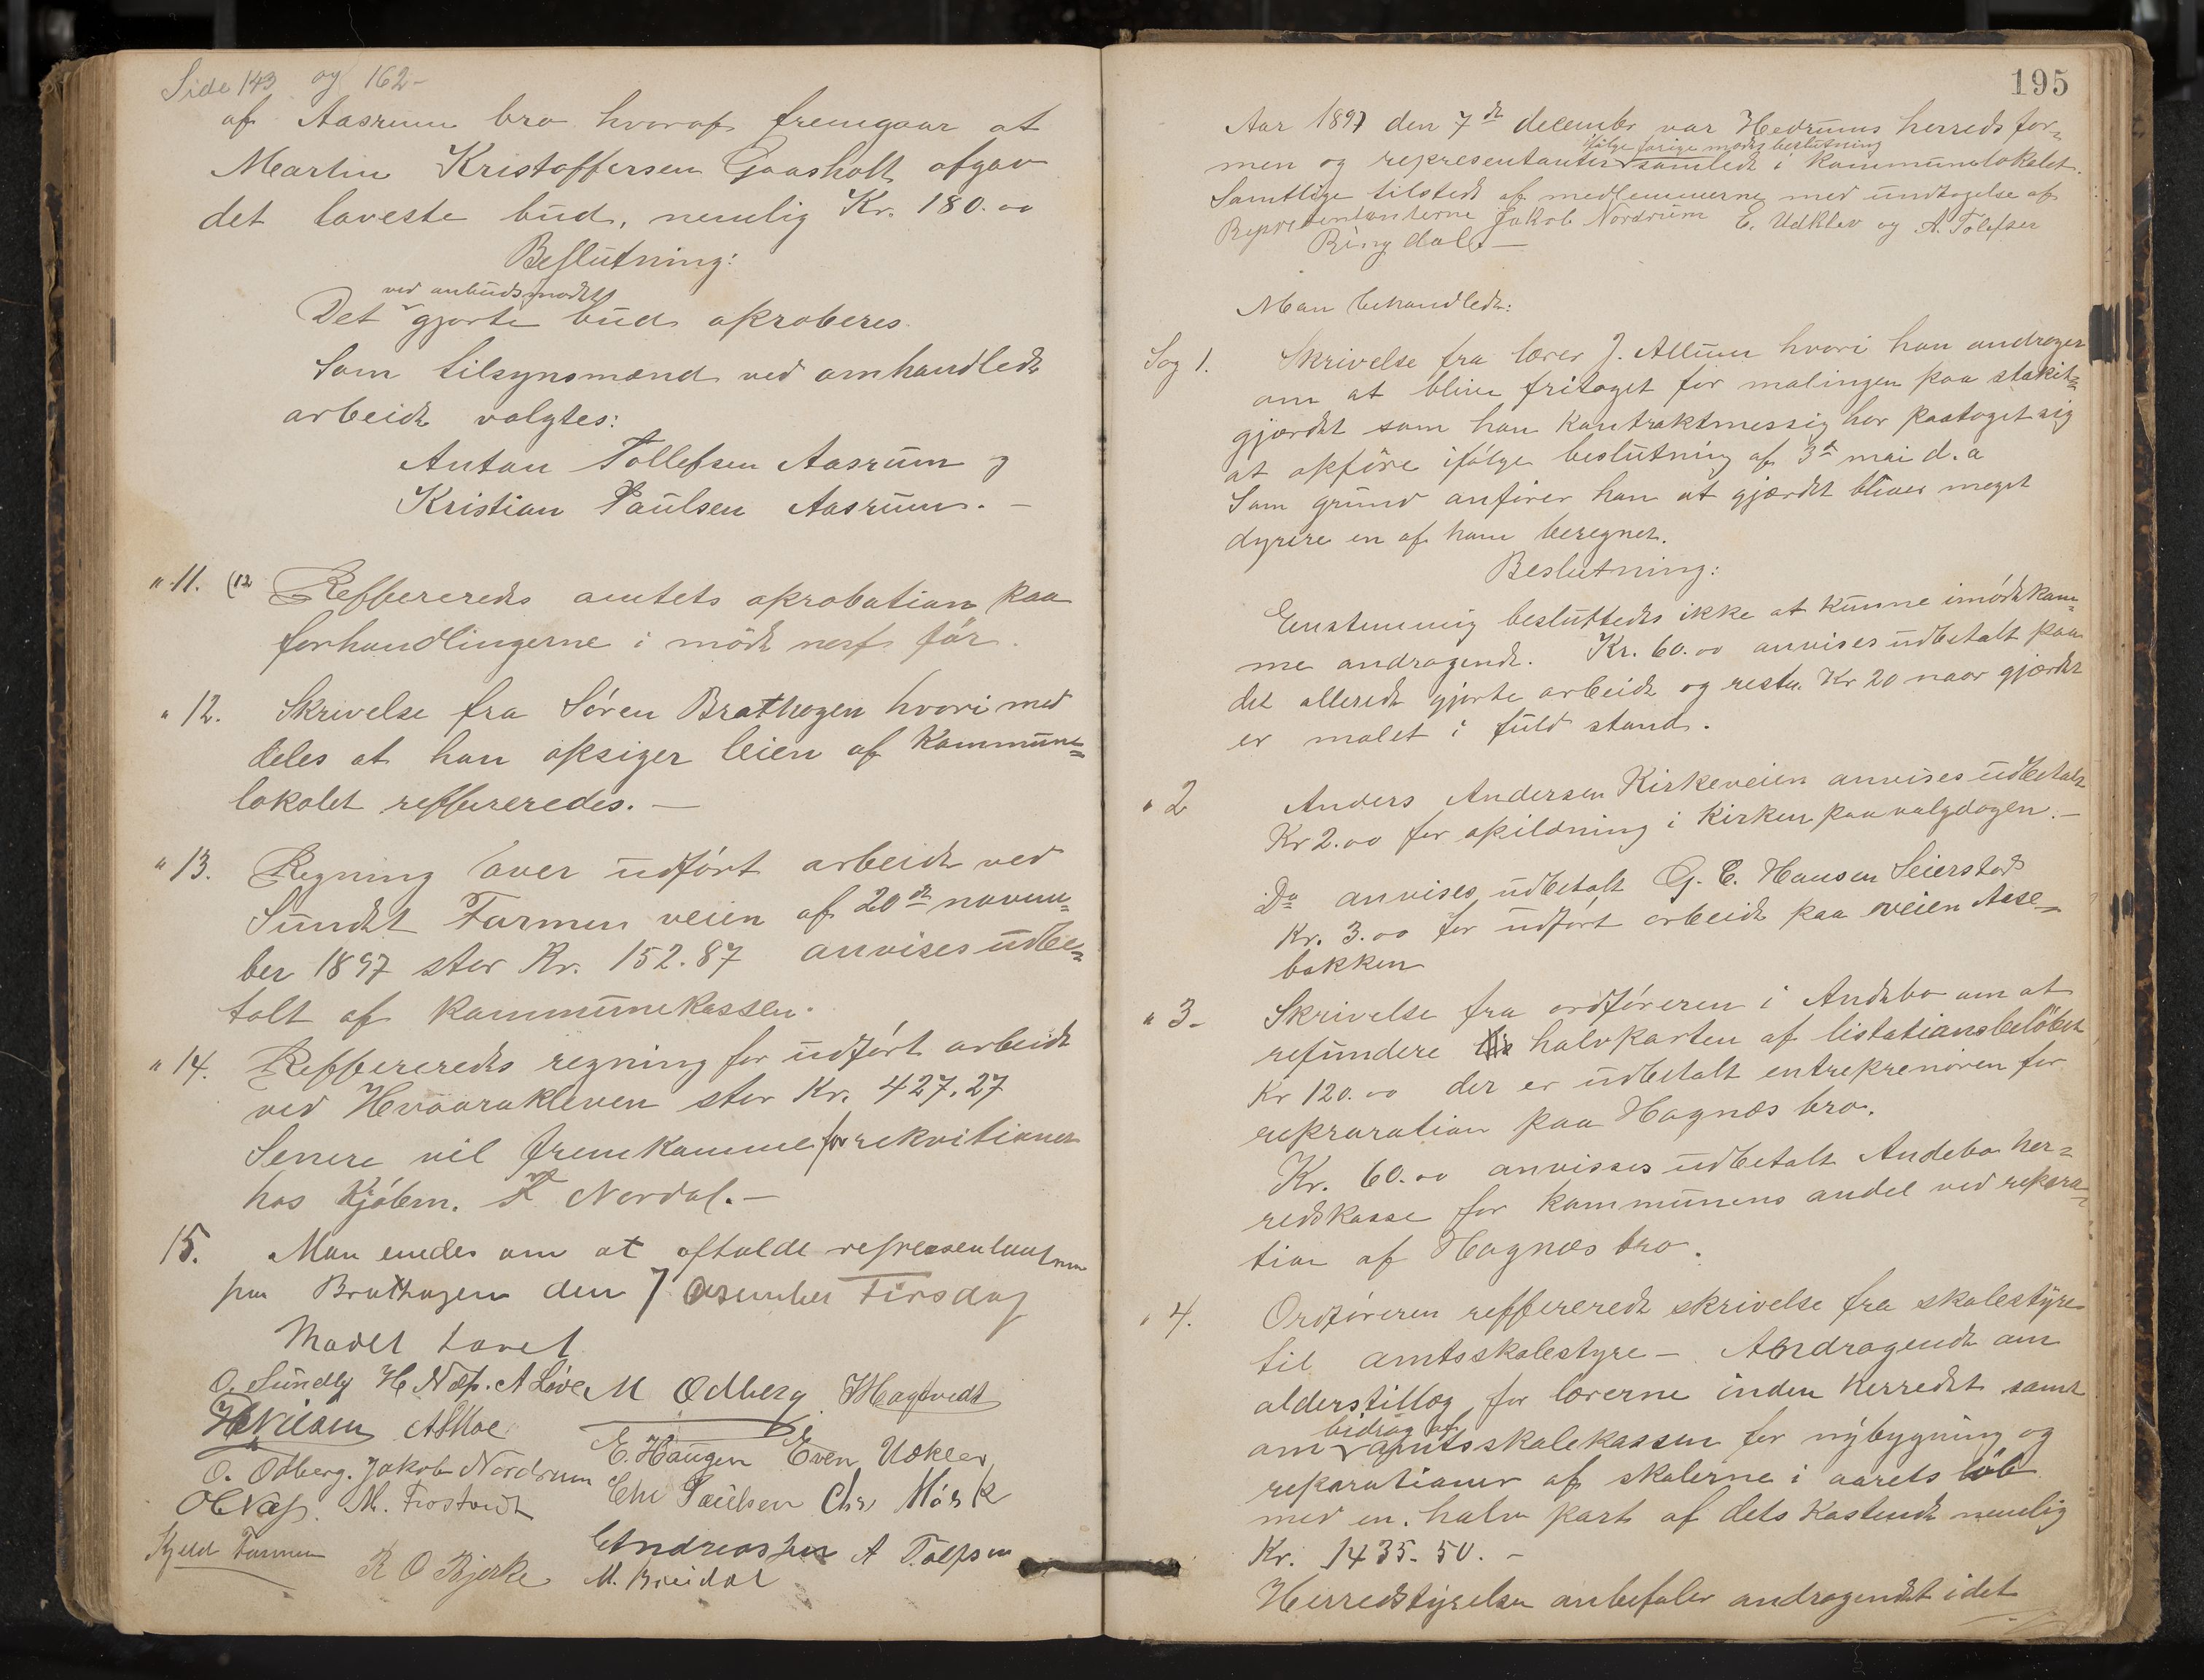 Side 143 og 162-
af Aasrum bro hvoraf fremgaar at
Martin Kristoffersen Gaasholt afgav
det laveste bud, nemlig Kr. 180.00
Beslutning:
ved anbudsmødet
Det gjorte bud aproberes.
Som tilsynsmænd ved omhandlede
arbeide valgtes:
Anton Tollefsen Aasrum og
Kristian Paulsen Aasrum. -
" 11. (12 Reffereredes amtets aprobation paa
forhandlingerne i møde før.
" 12. Skrivelse fra Søren Bratthagen hvori med
deles at han opsiger leien af Kommune=
lokalet reffereredes. -
" 13. Regning over udført arbeide ved
Sundet Farmen veien af 20de novem=
ber 1897 stor Kr. 152.87 anvises udbe=
talt af kommunekassen.
" 14. Reffereredes regning for udført arbeide
ved Hvaarakleven stor Kr. 427.27
Senere vil fremkomme for rekvitioner
hos Kjøbm. F Nordal. -
15. Man enedes om at aftalde represententerne
paa Bratthagen den 7 Desember Tirsdag
Mødet hævet
O. Sundby H. Næss. A Løve M Odberg Hagtvedt
H Nilsen A Moe
O. Odberg. Jakob Nordrum E. Haugen Even Udklev
O E Næss. M. Trostvedt Chr Paulsen Chr Mørk
Kjeld Farmen R O Bjerke Andreas A Tolfsen
M. Breidal
195
Aar 1897 den 7de decembr var Hedrums herreds for=
ifølge forige møds beslutning
men og representanter samlede i kommunelokalet.
Samtlige tilstede af medlemmerne med undtagelse af
Representanterne Jakob Nordrum E. Udklev og A. Tolefsen
Ringdal. -
Man behandlede:
Sag 1. Skrivelse fra lærer J. Allum hvori han andrager
om at blive fritaget for malingen paa stakit=
gjærdet som han Kontraktmessig har paataget sig
at opføre ifølge beslutning af 3de mai d. a
Som grund anfører han at gjærdet bliver meget
dyrere en af ham beregnet.
Beslutning:
Enstemmig besluttedes ikke at kunne imødekom=
me andragende. Kr. 60.00 anvises udbetalt paa
det allerede gjorte arbeide og resten Kr 20 naar gjærdet
er malet i fuld stand.
" 2 Anders Andersen Kirkeveien anvises udbetalt
Kr 2.00 for opildning i Kirken paa valgdagen. -
Do anvises udbetalt G. E. Hansen Seierstad
Kr. 3.00 for udført arbeide paa veien Aase=
bakken
" 3- Skrivelse fra ordføreren i Andebo om at
refundere halvparten af listationsbeløbet
Kr 120.00 der er udbetalt entreprenøren for
repraration paa Hagnæs bro.
Kr. 60.00 anvisses udbetalt Andebo her=
redskasse for kommunens andel ved repara=
tion af Hagnæs bro.
" 4. Ordføreren reffererede skrivelse fra skolestyre
til amtsskolestyre - Andragende om
alderstillæg for lærerne inden Herredet samt
bidrag af
om amtsskolekassen for nybygning og
reparationer af skolerne i aarets løb
med en halv part af dets Kostende nemlig
Kr. 1435.50. -
Herredstyrelsen anbefaler andragendet idet